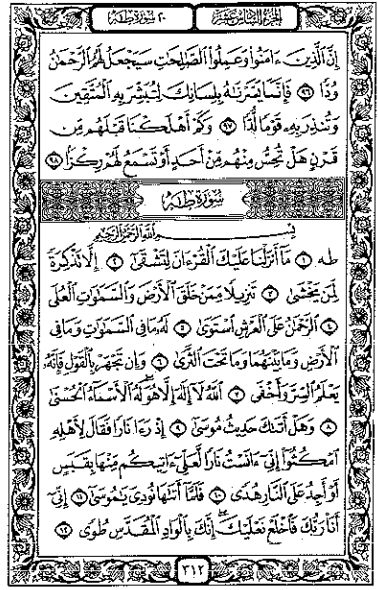 الجزء السادس عشر
٢٠ سورة طه
إِنَّ الَّذِينَ ءَامَنُوا وَعَمِلُوا الصَّالِحَاتِ سَيَجْعَلُ لَهُمُ الرَّحْمَنُ
وُدًّا ٩٦ فَإِنَّمَا يَسَّرْنَاهُ بِلِسَانِكَ لِتُبَشِّرَ بِهِ الْمُتَّقِينَ
وَتُنْذِرَ بِهِ قَوْمًا لُدًّا ٩٧ وَكَمْ أَهْلَكْنَا قَبْلَهُمْ مِنْ
قَرْنٍ هَلْ تُحِسُّ مِنْهُمْ مِنْ أَحَدٍ أَوْ تَسْمَعُ لَهُمْ رِكْزًا ٩٨
سورة طه
بِسْمِ اللَّهِ الرَّحْمَنِ الرَّحِيمِ
طه ١ مَا أَنْزَلْنَا عَلَيْكَ الْقُرْءَانَ لِتَشْقَى ٢ إِلَّا تَذْكِرَةً
لِمَنْ يَخْشَى ٣ تَنْزِيلًا مِمَّنْ خَلَقَ الْأَرْضَ وَالسَّمَاوَاتِ الْعُلَى
٤ الرَّحْمَنُ عَلَى الْعَرْشِ اسْتَوَى ٥ لَهُ مَا فِي السَّمَاوَاتِ وَمَا فِي
الْأَرْضِ وَمَا بَيْنَهُمَا وَمَا تَحْتَ الثَّرَى ٦ وَإِنْ تَجْهَرْ بِالْقَوْلِ فَإِنَّهُ
يَعْلَمُ السِّرَّ وَأَخْفَى ٧ اللَّهُ لَا إِلَهَ إِلَّا هُوَ لَهُ الْأَسْمَاءُ الْحُسْنَى
٨ وَهَلْ أَتَاكَ حَدِيثُ مُوسَى ٩ إِذْ رَءَا نَارًا فَقَالَ لِأَهْلِهِ
امْكُثُوا إِنِّي ءَانَسْتُ نَارًا لَعَلِّي ءَاتِيكُمْ مِنْهَا بِقَبَسٍ
أَوْ أَجِدُ عَلَى النَّارِ هُدًى ١٠ فَلَمَّا أَتَاهَا نُودِيَ يَامُوسَى ١١ إِنِّي
أَنَا رَبُّكَ فَاخْلَعْ نَعْلَيْكَ إِنَّكَ بِالْوَادِ الْمُقَدَّسِ طُوًى ١٢
٣١٢